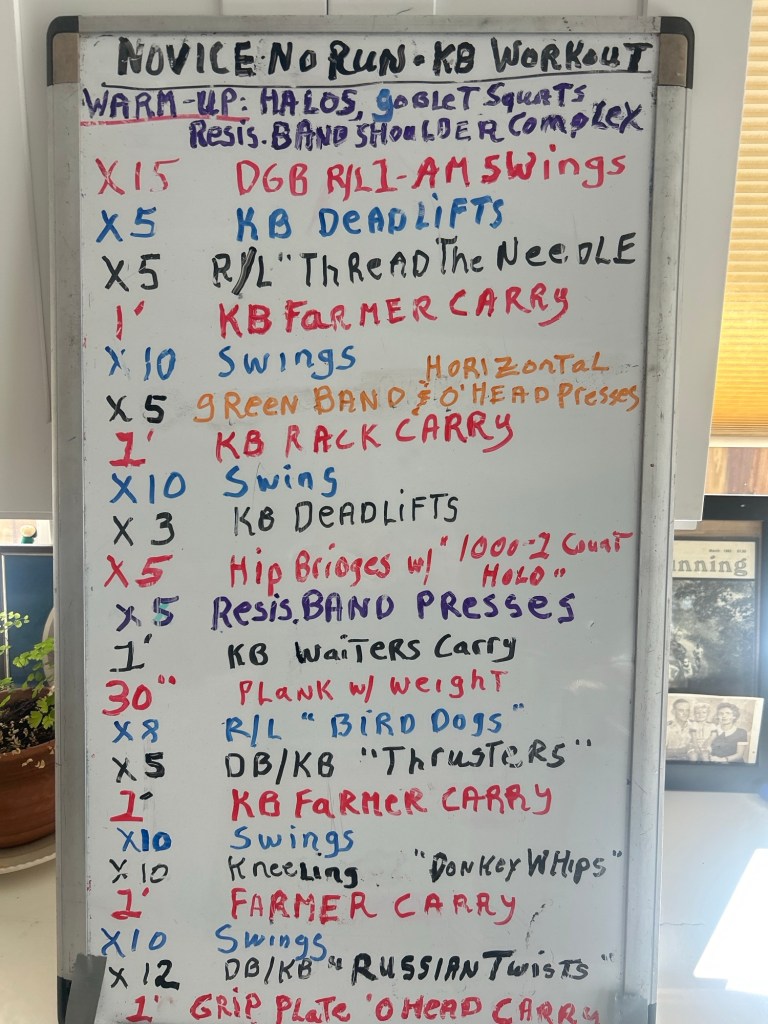 NOVICE·NO RUN·KB WORKOUT
WARM-UP: HALOS, goBLET SquATS
Resis. BAND SHOULDER Complex
X15 DGB R/L 1-AM Swings
X5 KB DeADLiFTS
X5 R/L "ThReAD The NeeDLE
1' KB FarMER CARRY
X10 Swings
HORIZontaL
X5 gReen BAND & O'HEAD Presses
1' KB RACK CARRY
X10 Swing
X3 KB DeADLiFTS
X5 Hip Bridges w/ "1000-1 Count
HoLD"
X5 Resis. BAND PResses
1' KB WaiTeRs Carry
30" PLANK w/ weighT
X8 R/L "BiRD Dogs"
X5 DB/KB "ThrusTeRs"
1' KB FarMeR CARRY
X10 Swings
X10 KneeLing "DonKey WHips"
1' FARMER CARRY
X10 Swings
X12 DB/KB "RUSSIAN TwisTs"
1' GRIP PLaTe 'O HeaD CARRY